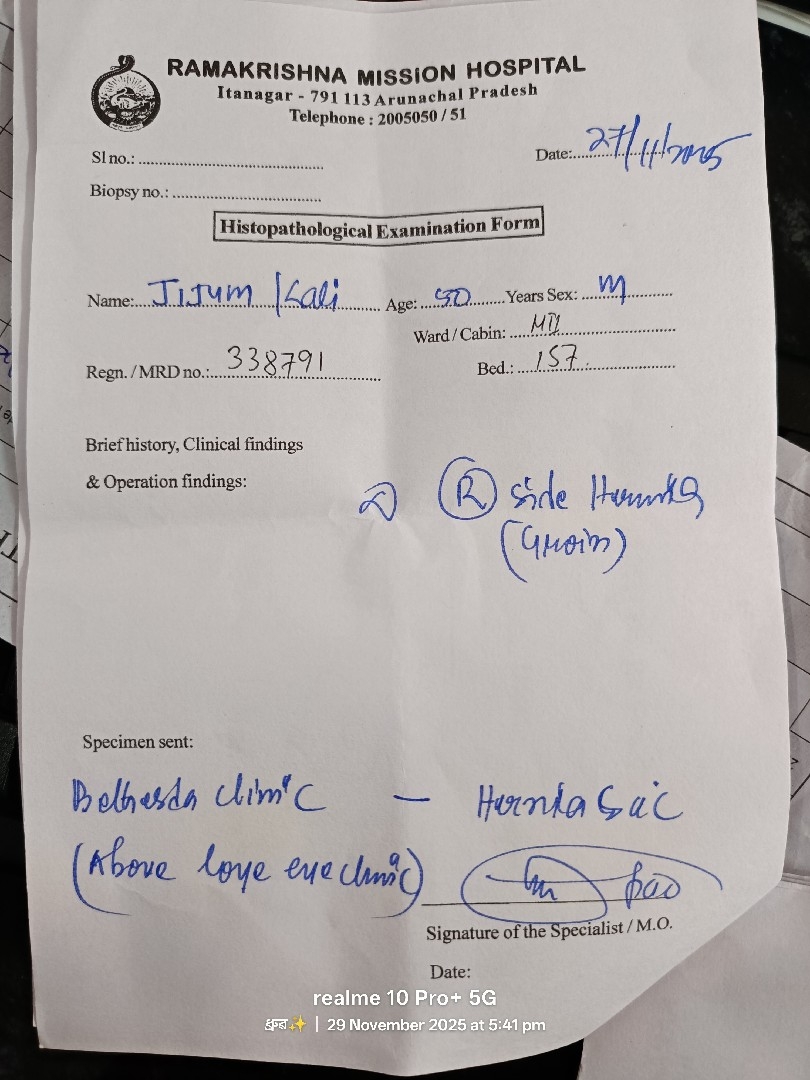 RAMAKRISHNA MISSION HOSPITAL
Itanagar - 791 113 Arunachal Pradesh
Telephone : 2005050 / 51
Sl no.:
Date: 27/11/2025
Biopsy no.:
Histopathological Examination Form
Name: JIJUM Kali Age: 50 Years Sex: M
Ward / Cabin:
Regn. / MRD no.: 338791 Bed.: 157
Brief history, Clinical findings
& Operation findings:
R side Hernia
(Groin)
Specimen sent:
Bethesda clinic — Hernia Sac
(Above loye eye clinic)
Signature of the Specialist / M.O.
Date:
realme 10 Pro+ 5G
29 November 2025 at 5:41 pm